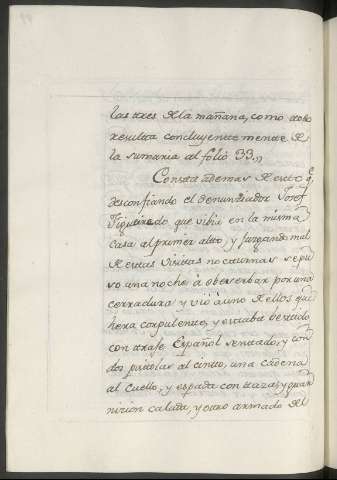 las tres de la mañana, como todo
resulta concluyentemente de
la sumaria al folio 33.,,
Consta ademas de esto q.e
desconfiando el denunciador Josef
Figueredo que vibia en la misma
casa al primer alto, y juzgando mal
de estas visitas nocturnas se pu
so una noche à obserbar por una
cerradura y viò à uno de ellos que
hera corpulento, y estaba bestido
con traje Español sentado, y con
dos pistolas al cinto, una cadena
al cuello, y espada con tazas y guar
nicion calada, y otro armado del